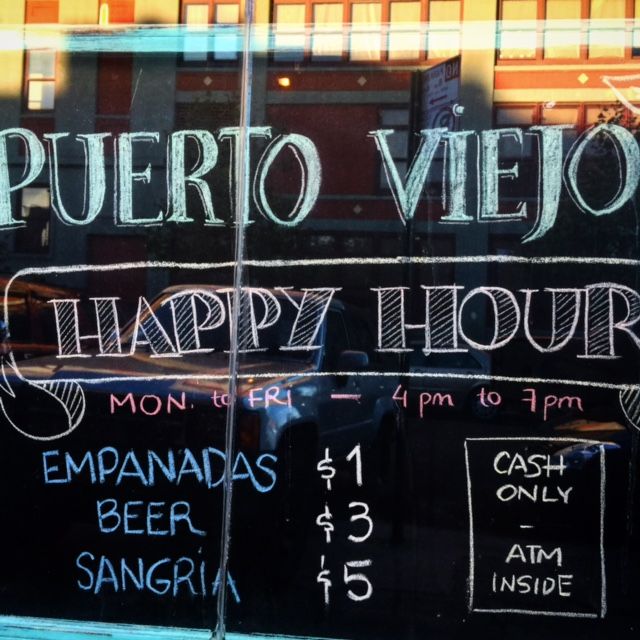 PUERTO VIEJO
HAPPY HOUR
MON. to FRI — 4 pm to 7 pm
EMPANADAS $1
BEER $3
SANGRIA $5
CASH
ONLY
-
ATM
INSIDE